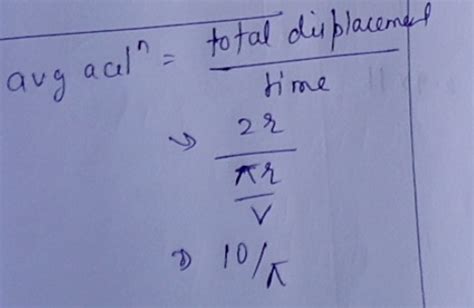 avg acelⁿ = total displacement / time
→ 2r / (πr / v)
⇒ 10/π